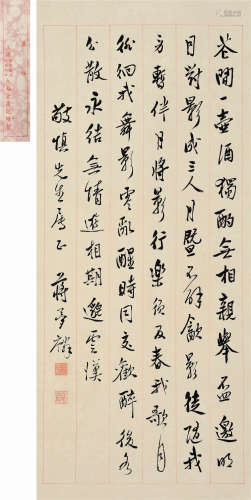 花間一壺酒獨酌無相親舉盃邀明
月對影成三人月既不解飲影徒隨我
身暫伴月將影行樂須及春我歌月
徘徊我舞影零亂醒時同交歡醉後各
分散永結無情遊相期邈雲漢
敬慎先生屬正 蔣夢麟